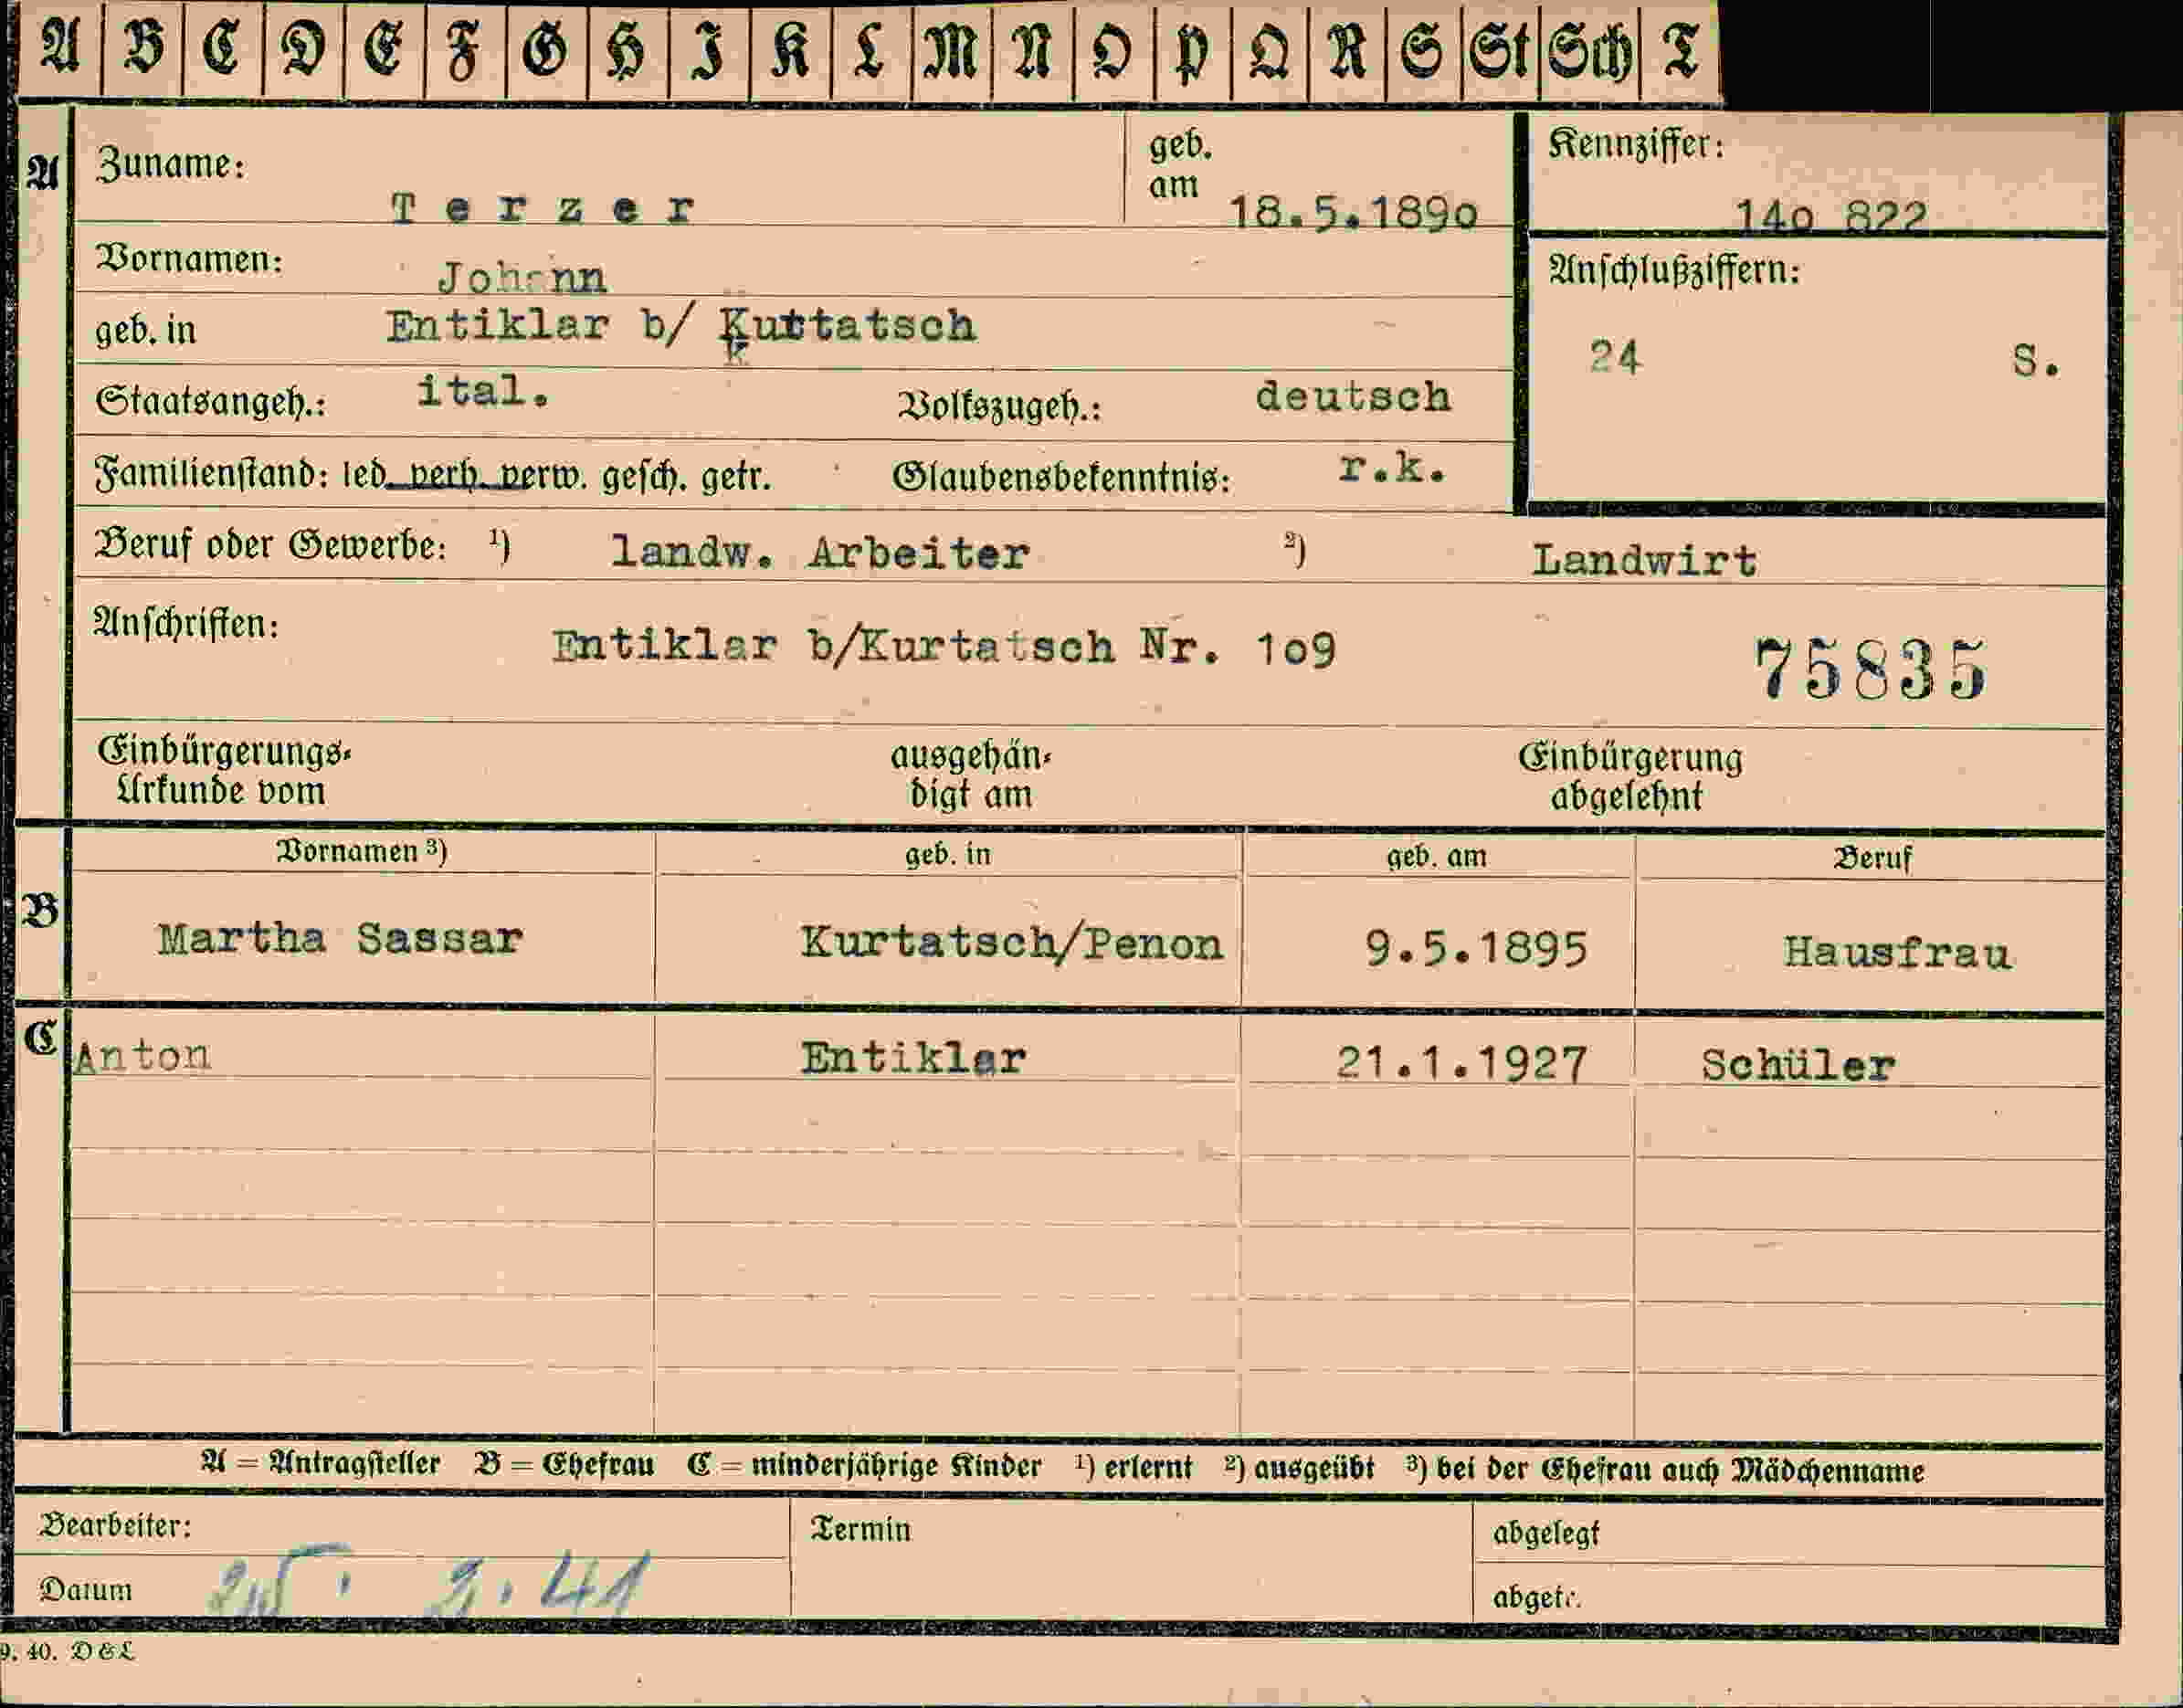 A B C D E F G H I K L M N O P Q R S St Sch T
A
Zuname: Terzer
geb. am 18.5.1890
Kennziffer: 140 822
Vornamen: Johann
Anschlußziffern:
24 S.
geb. in Entiklar b/ Kurtatsch
Staatsangeh.: ital. Volkszugeh.: deutsch
Familienstand: led. verh. verw. gesch. getr. Glaubensbekenntnis: r.k.
Beruf oder Gewerbe: ¹) landw. Arbeiter ²) Landwirt
Anschriften: Entiklar b/Kurtatsch Nr. 109 75835
Einbürgerungs- ausgehän- Einbürgerung
Urkunde vom digt am abgelehnt
Vornamen ³) geb. in geb. am Beruf
B Martha Sassar Kurtatsch/Penon 9.5.1895 Hausfrau
C Anton Entiklar 21.1.1927 Schüler
A = Antragsteller B = Ehefrau C = minderjährige Kinder ¹) erlernt ²) ausgeübt ³) bei der Ehefrau auch Mädchenname
Bearbeiter: Termin abgelegt
Datum abgetr.
9. 40. D&L